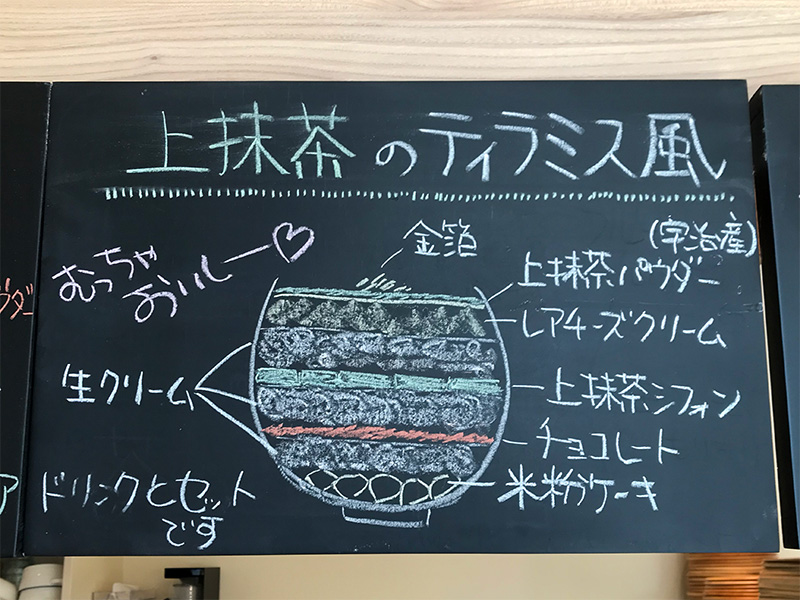 上抹茶のティラミス風
むっちゃ
おいしー♡
金箔
(宇治産)
上抹茶パウダー
レアチーズクリーム
生クリーム
上抹茶シフォン
チョコレート
米粉ケーキ
ドリンクとセット
です
ダー
ア